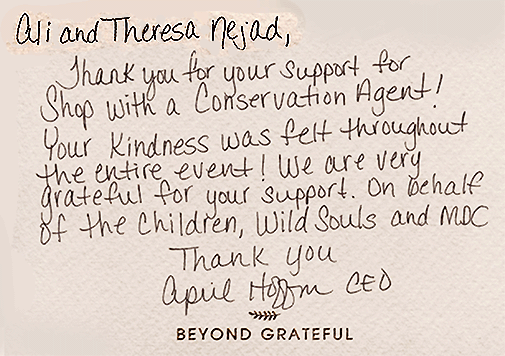 Ali and Theresa Nejad,
Thank you for your support for
Shop with a Conservation Agent!
Your Kindness was felt throughout
the entire event! We are very
grateful for your support. On behalf
of the Children, Wild Souls and MDC
Thank you
April Hoffm CEO
BEYOND GRATEFUL